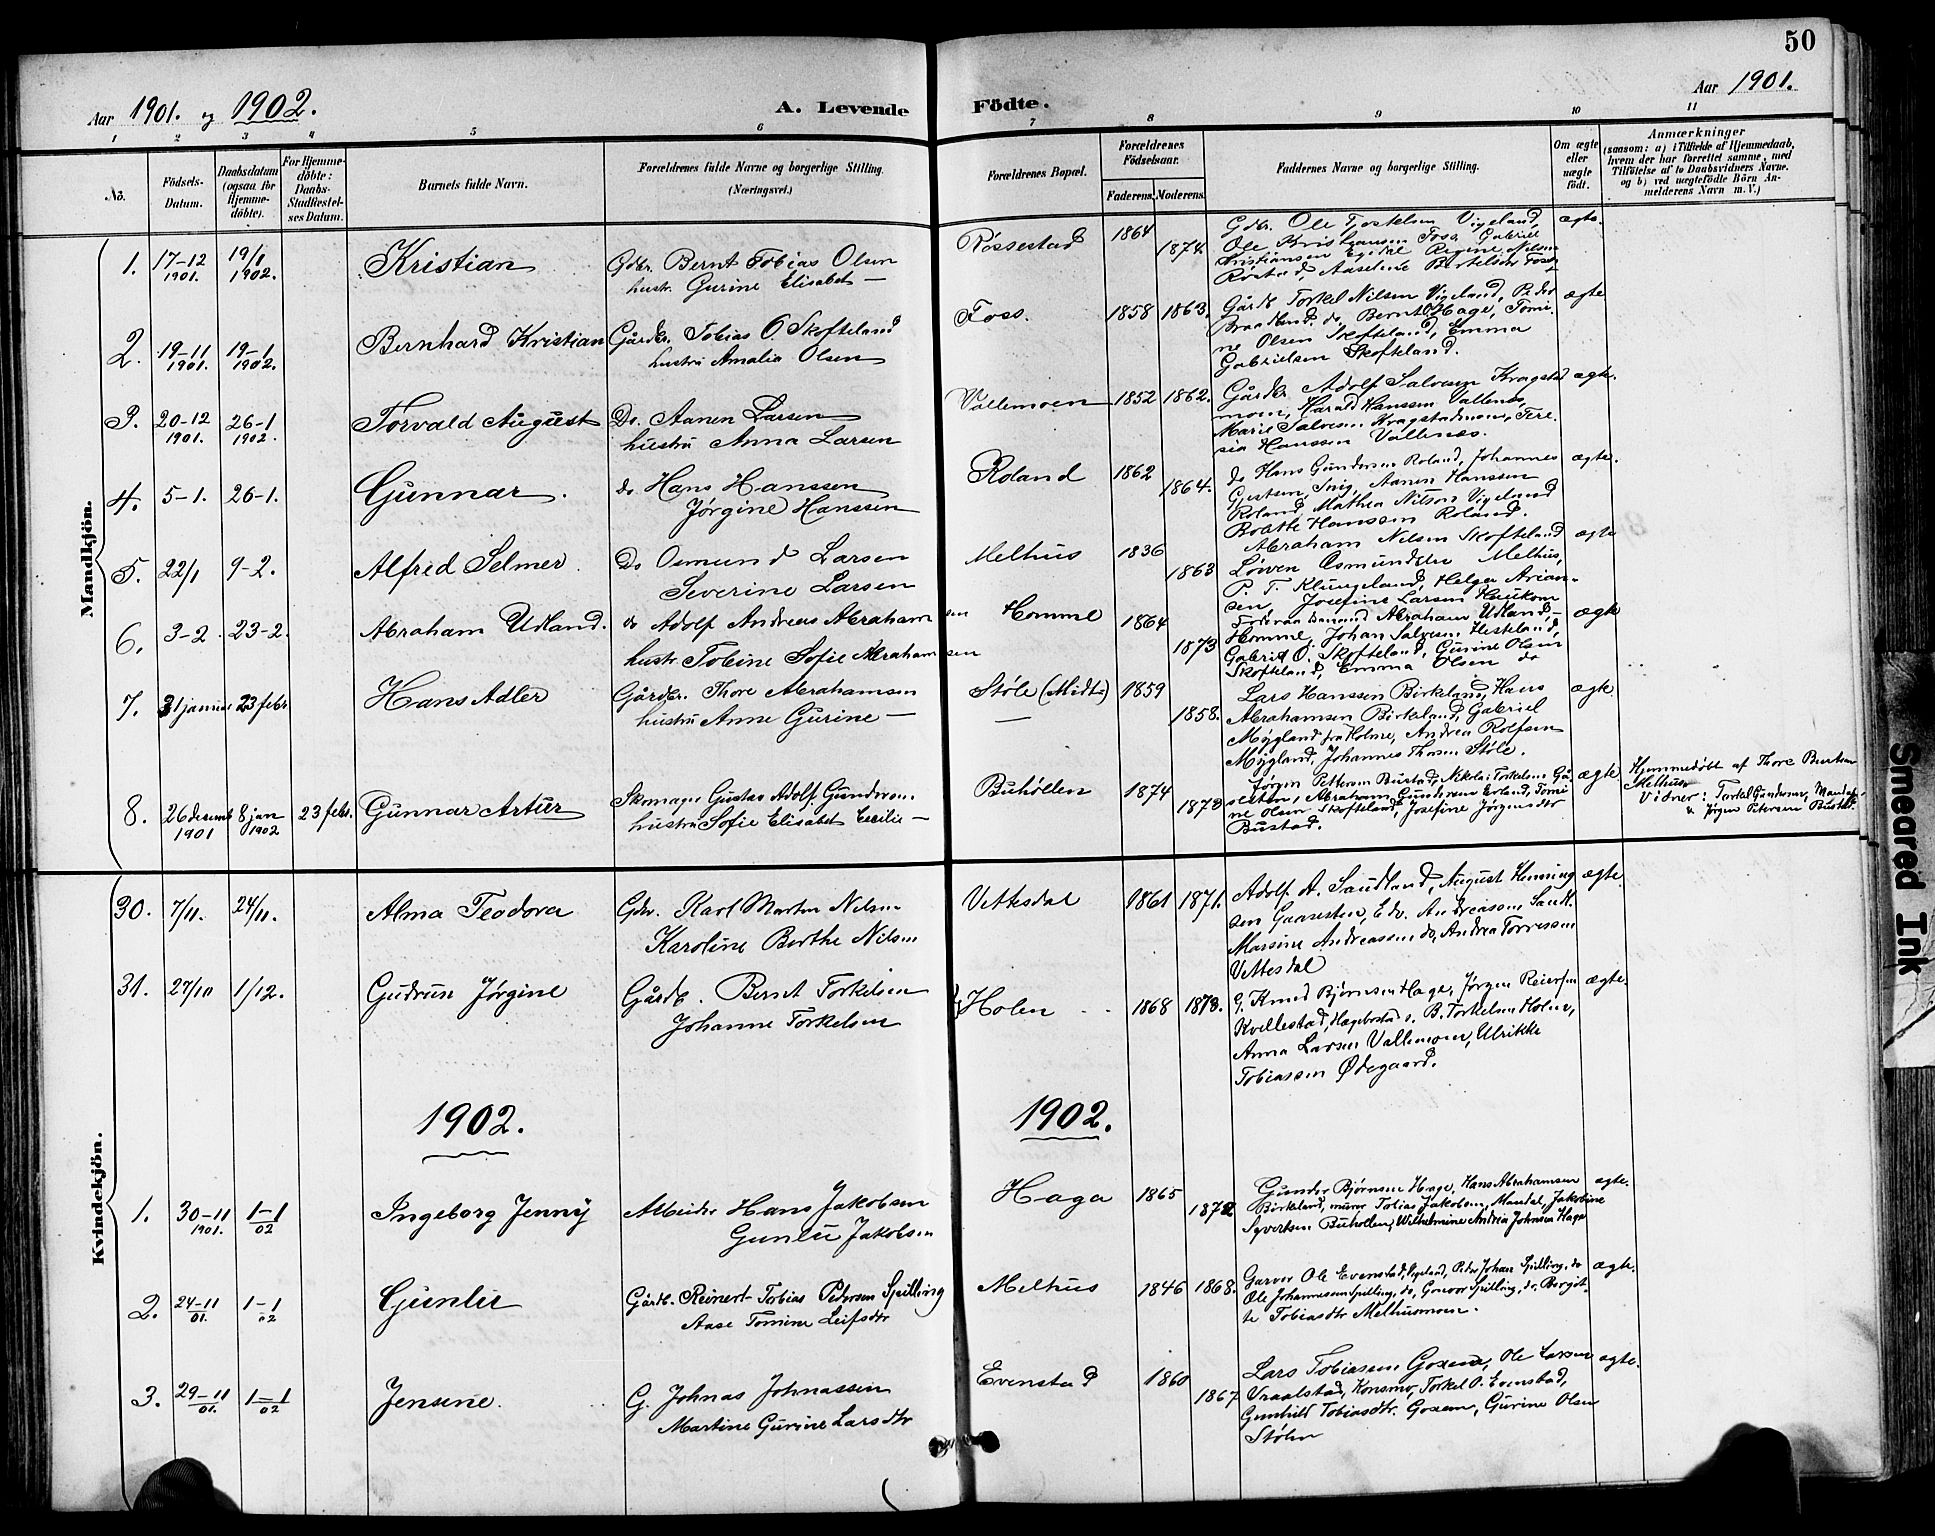 50
Aar 1901. og 1902.
A. Levende Födte.
Aar 1901.
1 2 3 4 5 6 7 8 9 10 11
No.
Födsels-Datum.
Daabsdatum (ogsaa for Hjemme-döbte).
For Hjemme-döbte: Daabs-Stadfæstel-ses Datum.
Barnets fulde Navn.
Forældrenes fulde Navne og borgerlige Stilling. (Næringsvei.)
Forældrenes Bopæl.
Forældrenes Födselsaar.
Faderens. Moderens.
Faddernes Navne og borgerlige Stilling.
Om ægte eller uægte födt.
Anmærkninger
(saasom: a) i Tilfælde af Hjemmedaab,
hvem der har forrettet samme, med
Tilföielse af to Daabsvidners Navne,
og b) ved uægtefödte Börn An-
melderens Navn m. V.)
Mandkjön.
1. 17-12 1901. 19/1 1902. Kristian Gdbr. Bernt Tobias Olsen
hustr. Gurine Elisabet —
Røssestad 1864 1874. Gdbr. Ole Torkelsen Vigeland, ægte.
Ole Kristiansen Foss, Gabriel
Kristiansen Egedal, Regine Nilsen
Røstad, Aaseline Bertelsdtr Foss
2. 19-11 1901. 19-1 1902. Bernhard Kristian Gårdbr. Tobias O. Skofteland
hustru Amalia Olsen
Foss. 1858 1863. Gårdb. Torkel Nilsen Vigeland, Peder ægte
Braadland, do, Bernt Hage, Tomi-
ne Olsen Skofteland, Emma
Gabrielsen Skofteland.
3. 20-12 1901. 26-1 1902. Torvald August Do. Aanen Larsen
hustru Anna Larsen
Vallemoen 1852 1862. Gårdbr Adolf Salvesen Kragstad ægte.
moen, Harald Hanssen Vallenes,
Marie Salvesen Kragstadmoen, Tere-
sia Hanssen Vallenes.
4. 5-1. 26-1. Gunnar. do Hans Hanssen
Jørgine Hanssen
Roland 1862 1864. do Hans Gundersen Roland, Johannes ægte.
Gjertsen, Snig, Aanen Hanssen
Roland, Mathea Nilsen Vigeland
Roland.
5. 22/1 9-2. Alfred Selmer. Do Osmund Larsen
Severine Larsen
Melhus 1836 1863 Abraham Nilsen Skofteland ægte
Osmundsen Melhus,
P. T. Klungeland, Helga Arian-
sen, Josefine Larsen Haukom
6. 3-2. 23-2. Abraham Udland. do Adolf Andreas Abrahamsen
hustr. Tobine Sofie Abrahamsen
Homme 1864 1873 Abraham Udland, ægte
Homme, Johan Salvesen Heskeland,
Gabriel O. Skofteland, Gurine Olsen
Skofteland, Emma Olsen do
7. 31 januar 23 febr Hans Adler Gårdbr. Thore Abrahamsen
hustru Anne Gurine —
Støle (Midt=) 1859 1858. Lars Hanssen Birkeland, Hans ægte.
Abrahamsen Birkeland, Gabriel
Mygland fra Holme, Andrea Rolfsen
Mygland, Johannes Thorsen Støle.
8. 26 desemb 1901 8 jan 1902 23 febr. Gunnar Artur Skomager Gustav Adolf Gundersen
hustru Sofie Elisabet Cecilie —
Buhøllen 1874 1878 Jørgen Pettersen Bustad, Nikolai Torkelsen Gå- ægte
Abraham Gundersen Erland, Tomi
ne Olsen Skofteland, Josefine Jørgensdtr
Bustad.
Hjemmedøbt af Thore Berthsen
Melhus
Vidner: Torkel Gundersen, Mandal,
& Jørgen Petersen Bustad.
Kvindekjön.
30. 7/11. 24/11. Alma Teodora Gdbr. Karl Martin Nilsen
Karoline Berthe Nilsen
Vettesdal 1861 1871. Adolf A. Saudland, August Henning ægte.
sen Gaaseston, Edv. Andreasen Saudl.
Massine Andreassen do, Andrea Torressen
Vettesdal
31. 27/10 1/12. Gudrun Jørgine Gårdb. Bernt Torkelsen
Johanne Torkelsen
Holen 1868 1878. G. Knud Bjørnsen Haga, Jørgen Reiersen ægte.
Kvellestad, Hægebostad s. B. Torkelsen Holen,
Anna Larsen Vallemoen, Ulrikke
Tobiassen Ødegaard.
1902. 1902.
1. 30-11 1901. 1-1 02 Ingeborg Jenny Arbeider Hans Jakobsen
Gunlu Jakobsen
Haga 1865 1872 Gunder Bjørnsen Haga, Hans Abrahamsen ægte.
Birkeland, murer Tobias Jakobsen, Mandal, Jakobine
Syvertsen Buhøllen, Wilhelmine Andrea Johnsen Haga
2. 24-11 01. 1-1 02 Gunlu Gårdb. Reinert Tobias Pedersen Spilling
Aase Tomine Leifsdtr
Melhus 1846 1868. Garver Ole Evenstad, Vigeland, Peder Johan Spilling, do ægte.
Ole Johannessen Spilling, do, Gunvor Spilling, do, Bergit-
te Tobiasdtr Melhusmoen.
3. 29-11 01. 1-1 02 Jensine. G. Johnas Johnassen
Martine Gurine Larsdtr
Evenstad 1860 1867 Lars Tobiassen Goxem, Ole Larsen ægte.
Vraalstad, Konsmo, Torkel O. Evenstad,
Gunhild Tobiasdtr. Goxem, Gurine Olsen
Stølen
Smeared Ink